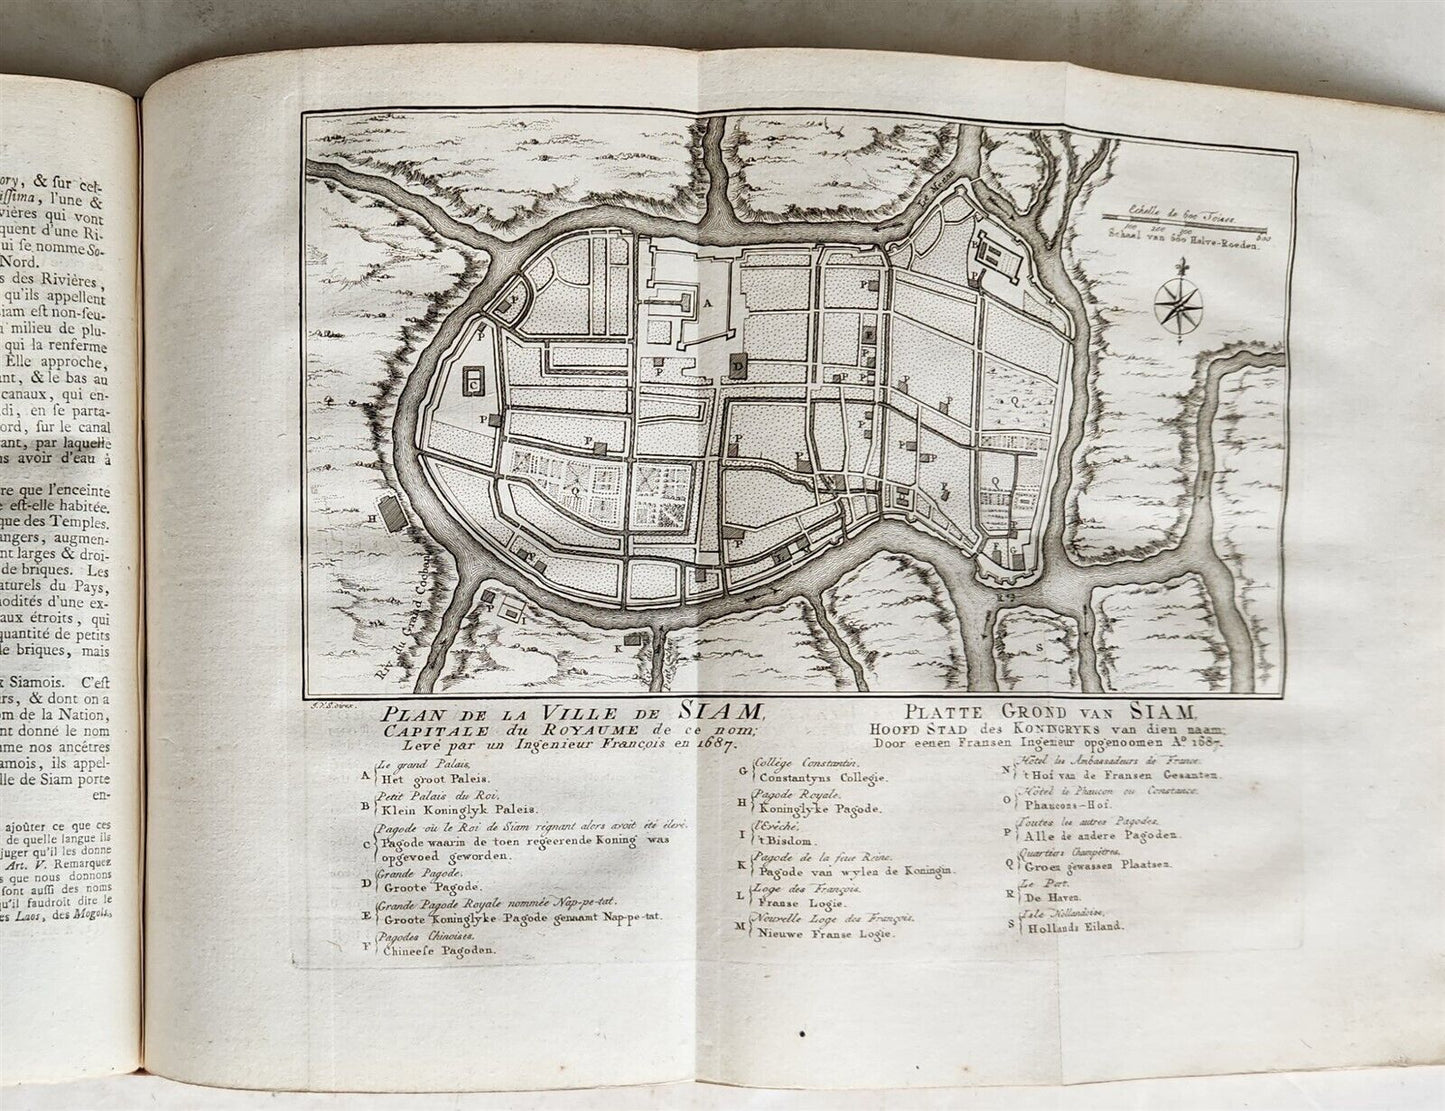 ory, & sur cet-
issima, l'une &
vières qui vont
quent d'une Ri-
ui se nomme So-
Nord.
s des Rivières,
qu'ils appellent
iam est non-seu-
u milieu de plu-
qui la renferme
Elle approche,
ant, & le bas au
canaux, qui en-
di, en se parta-
ord, sur le canal
vant, par laquelle
ns avoir d'eau à
re que l'enceinte
e est-elle habitée.
que des Temples.
angers, augmen-
nt larges & droi-
de briques. Les
aturels du Pays,
modités d'une ex-
aux étroits, qui
quantité de petits
le briques, mais
x Siamois. C'est
rs, & dont on a
om de la Nation,
nt donné le nom
mme nos ancétres
amois, ils appel-
lle de Siam porte
en-
ajoûter ce que ces
de quelle langue ils
juger qu'il les donne
Art. V. Remarquez
s que nous donnons
sont aussi des noms
qu'il faudroit dire le
es Laos, des Mogols,
Echelle de 600 Toises.
100 200 300 600
Schaal van 600 Halve-Roeden.
Riv. du Grand Cochon
PLAN DE LA VILLE DE SIAM,
CAPITALE du ROYAUME de ce nom;
Levé par un Ingenieur François en 1687.
PLATTE GROND VAN SIAM,
HOOFD STAD des KONINGRYKS van dien naam;
Door eenen Fransen Ingenieur opgenoomen Aº 1687.
A Le grand Palais,
Het groot Paleis.
B Petit Palais du Roi,
Klein Koninglyk Paleis.
C Pagode où le Roi de Siam régnant alors avoit été élevé.
Pagode waarin de toen regeerende Koning was
opgevoed geworden.
D Grande Pagode,
Groote Pagode.
E Grande Pagode Royale nommée Nap-pe-tat.
Groote Koninglyke Pagode genaamt Nap-pe-tat.
F Pagodes Chinoises.
Chineese Pagoden.
G Collége Constantin.
Constantyns Collegie.
H Pagode Royale.
Koninglyke Pagode.
I l'Evêché,
't Bisdom.
K Pagode de la feue Reine.
Pagode van wylen de Koningin.
L Loge des François.
Franse Logie.
M Nouvelle Loge des François.
Nieuwe Franse Logie.
N Hotel des Ambassadeurs de France.
't Hof van de Fransen Gesanten.
O Hôtel de Phaucon ou Constance.
Phaucons-Hof.
P Toutes les autres Pagodes.
Alle de andere Pagoden.
Q Quartiers Champêtres.
Groen gewassen Plaatsen.
R Le Port.
De Haven.
S Isle Hollandoise.
Hollands Eiland.